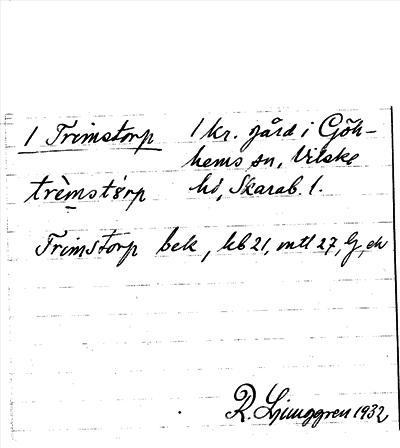 1 Trimstorp 1 kr. gård i Gök-
hems sn, Vilske
trèmstòrp hd, Skarab. l.
Trimstorp bek, kb 21, mtl 27, G, ek
R. Ljunggren 1932